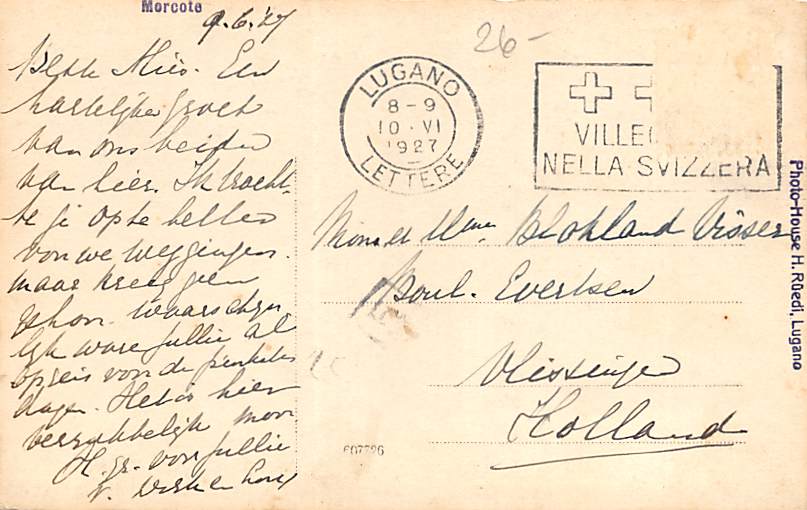 Morcote
9.6.'27
Beste Mies. Een
hartelijke groet
van ons beiden
van hier. Ik tracht-
te je op te bellen
voor we weggingen.
maar kreeg geen
gehoor. Waarschijn
lijk waren jullie al
op reis voor de pinkster
dagen. Het is hier
verrukkelijk mooi
H. gr. voor jullie
v.
26-
LUGANO
8-9
10·VI
1927
LETTERE
NELLA SVIZZERA
Mons et Mme. Blokland Visser
Boul. Evertsen
Vlissingen
Holland
607726
Photo-House H. Rüedi, Lugano